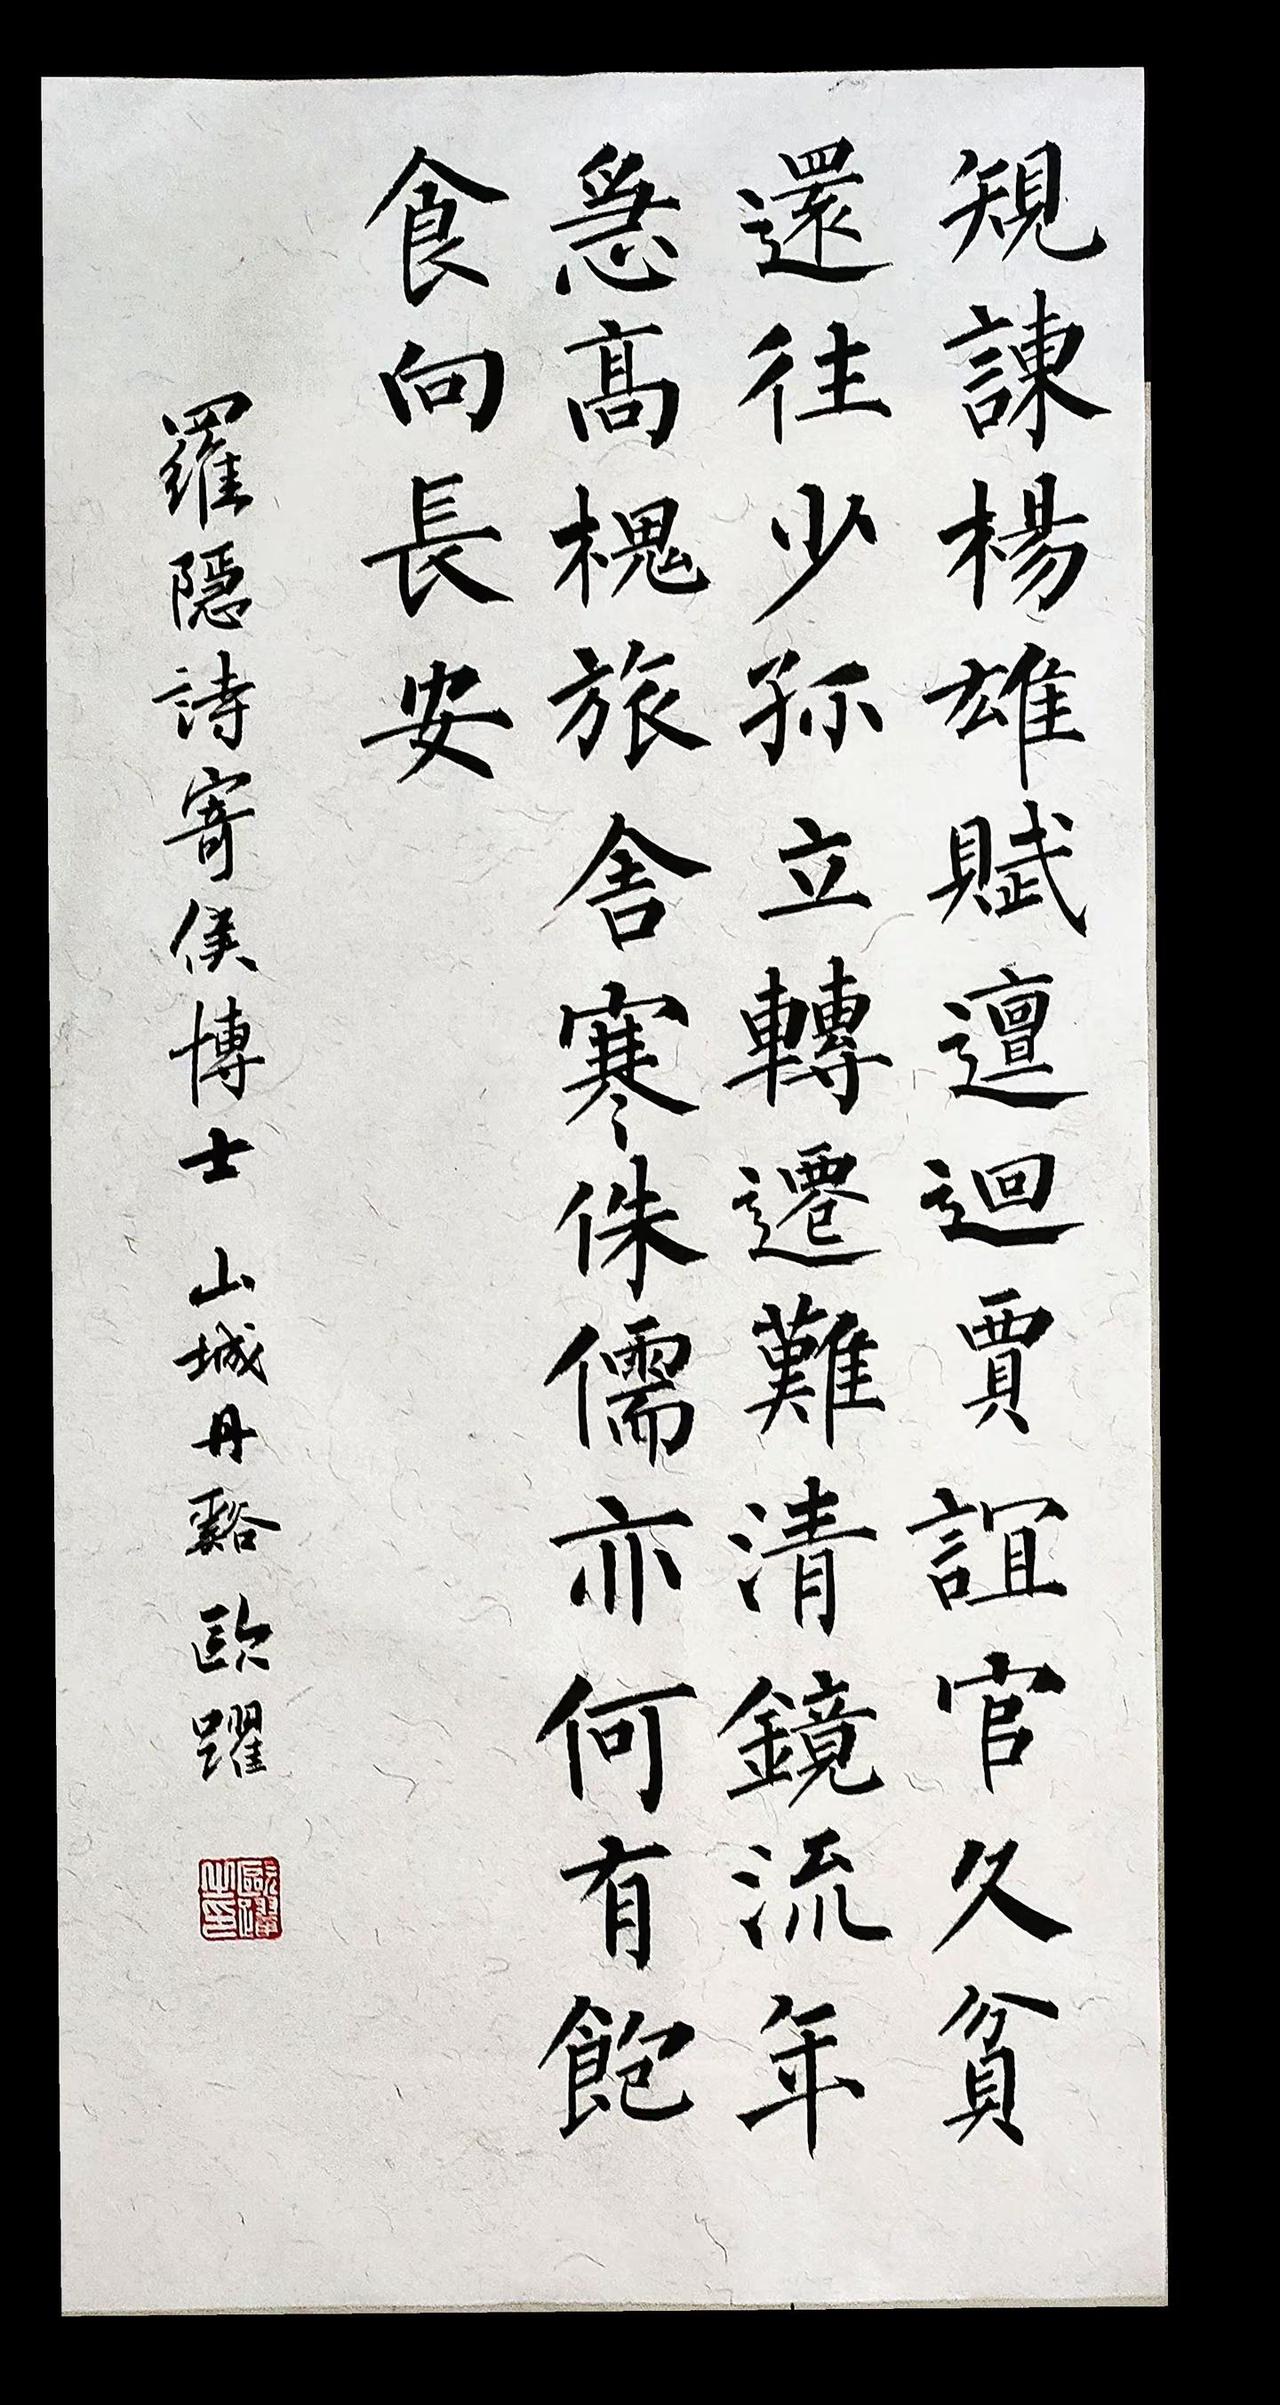 規諫楊雄賦邅迴賈誼官久貧
還往少孤立轉遷難清鏡流年
急高槐旅舍寒侏儒亦何有飽
食向長安
羅隱詩寄侯博士 山城丹谿歐躍
歐躍之印